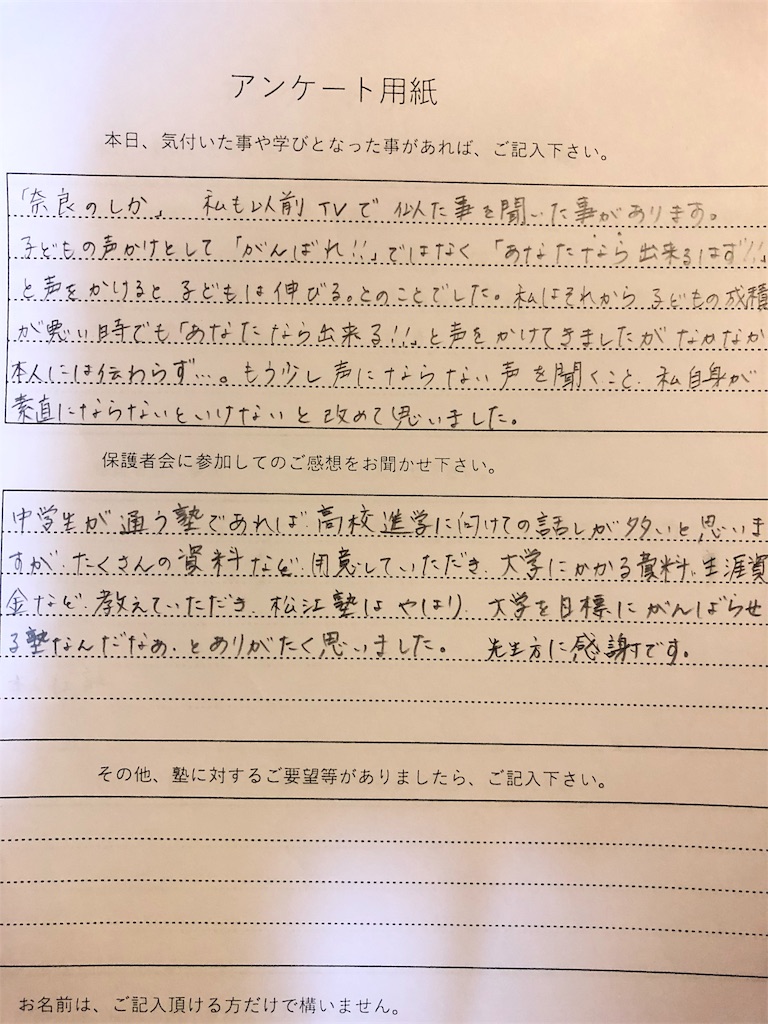 アンケート用紙
本日、気付いた事や学びとなった事があれば、ご記入下さい。
「奈良のしか」 私も以前TVで似た事を聞いた事があります。
子どもの声かけとして「がんばれ!!」ではなく「あなたなら出来るはず!!」
と声をかけると子どもは伸びる。とのことでした。私はそれから子どもの成積
が悪い時でも「あなたなら出来る!!」と声をかけてきましたがなかなか
本人には伝わらず…。もう少し声にならない声を聞くこと、私自身が
素直にならないといけないと改めて思いました。
保護者会に参加してのご感想をお聞かせ下さい。
中学生が通う塾であれば、高校進学に向けての話しが多いと思いま
すが、たくさんの資料など、用意していただき、大学にかかる費料、生涯賃
金など、教えていただき、松江塾はやはり、大学を目標にがんばらせ
る塾なんだなぁ、とありがたく思いました。 先生方に感謝です。
その他、塾に対するご要望等がありましたら、ご記入下さい。
お名前は、ご記入頂ける方だけで構いません。